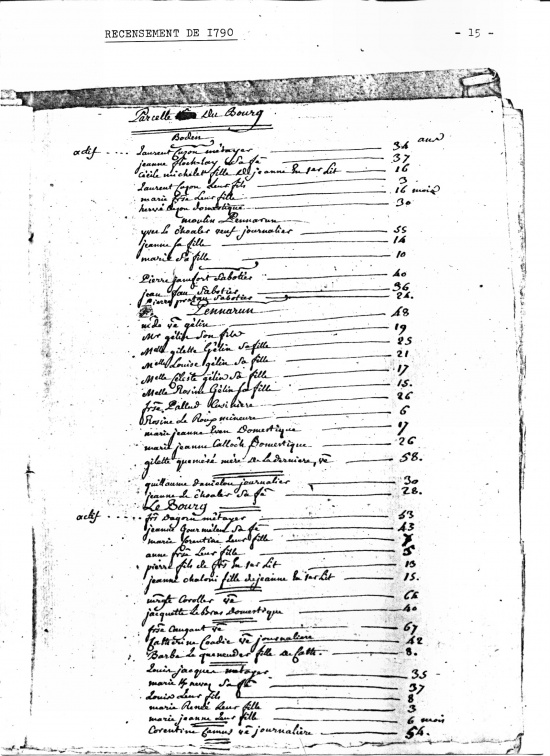 RECENSEMENT DE 1790 - 15 -
Parcelle Du Bourg
Boden
ans
actif laurent cazon métayer 34
jeanne sa fe 37
cécile michelet fille de jeanne en 1er Lit 16
laurent cazon leur fils 3
marie frse leur fille 16 mois
hervé cazon domestique 30
moulin Pennarun
yves Le choaler veuf journalier 55
jeanne sa fille 14
marie sa fille 10
Pierre jamfort Sabotier 40
jean Sabotier 36
pierre Sabotier 24.
Pennarun
ve gélin 48
Mr gélin son fils 19
Melle gilette Gélin sa fille 25
Melle Louise gélin sa fille 21
Melle Céleste gélin sa fille 17
Melle Rosine Gélin sa fille 15.
frse Pallud Cuisinière 26
Rosine Le Roux mineure 6
marie jeanne Even Domestique 17
marie jeanne Calloch Domestique 26
gilette quéméré mère de la dernière, ve 58.
guillaume daniélou journalier 30
jeanne le choaler sa fe 28.
Le Bourg
actif frs Dagorn métayer 53
jeanne Gourmelen sa fe 43
marie corentine leur fille 7
anne frse Leur fille 5
pierre fils de frs en 1er Lit 13
jeanne chaloni fille de jeanne en 1er Lit 15.
margte Coroller ve 66
jacquette Le Bras Domestique 40
frse Caugant ve 67
Catherine Coadic ve journalière 42
Barbe Le quéneuder fille de Cath. 8.
Louis jacques métayer 35
marie sa fe 37
Louis Leur fils 8
marie Renée Leur fille 3
marie jeanne Leur fille 6 mois
Corentine Camus ve journalière 54.